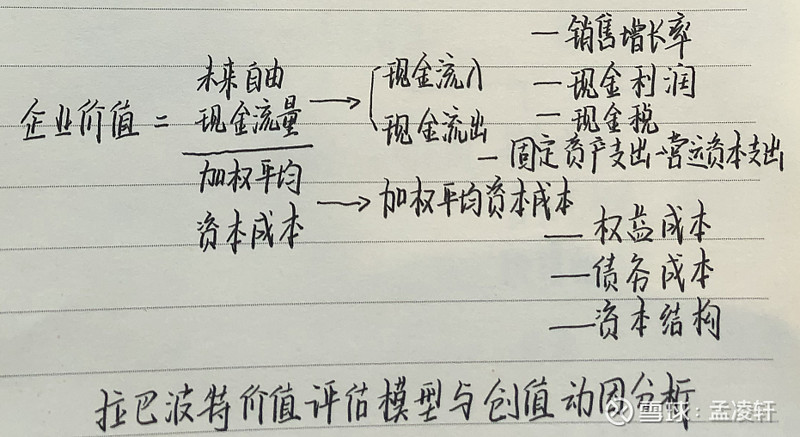 —销售增长率
未来自由
现金流入
—现金利润
企业价值 = 现金流量
现金流出
—现金税
—固定资产支出—营运资本支出
加权平均
资本成本
加权平均资本成本
—权益成本
—债务成本
—资本结构
拉巴波特价值评估模型与创值动因分析
雪球：孟凌轩